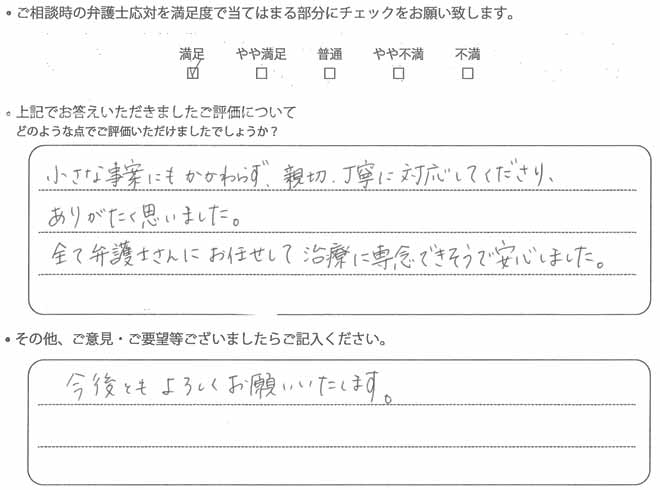 ・ご相談時の弁護士応対を満足度で当てはまる部分にチェックをお願い致します。
満足 やや満足 普通 やや不満 不満
☑ □ □ □ □
・上記でお答えいただきましたご評価について
どのような点でご評価いただけましたでしょうか?
小さな事案にもかかわらず、親切、丁寧に対応してくださり、
ありがたく思いました。
全て弁護士さんにお任せして治療に専念できそうで安心しました。
・その他、ご意見・ご要望等ございましたらご記入ください。
今後ともよろしくお願いいたします。